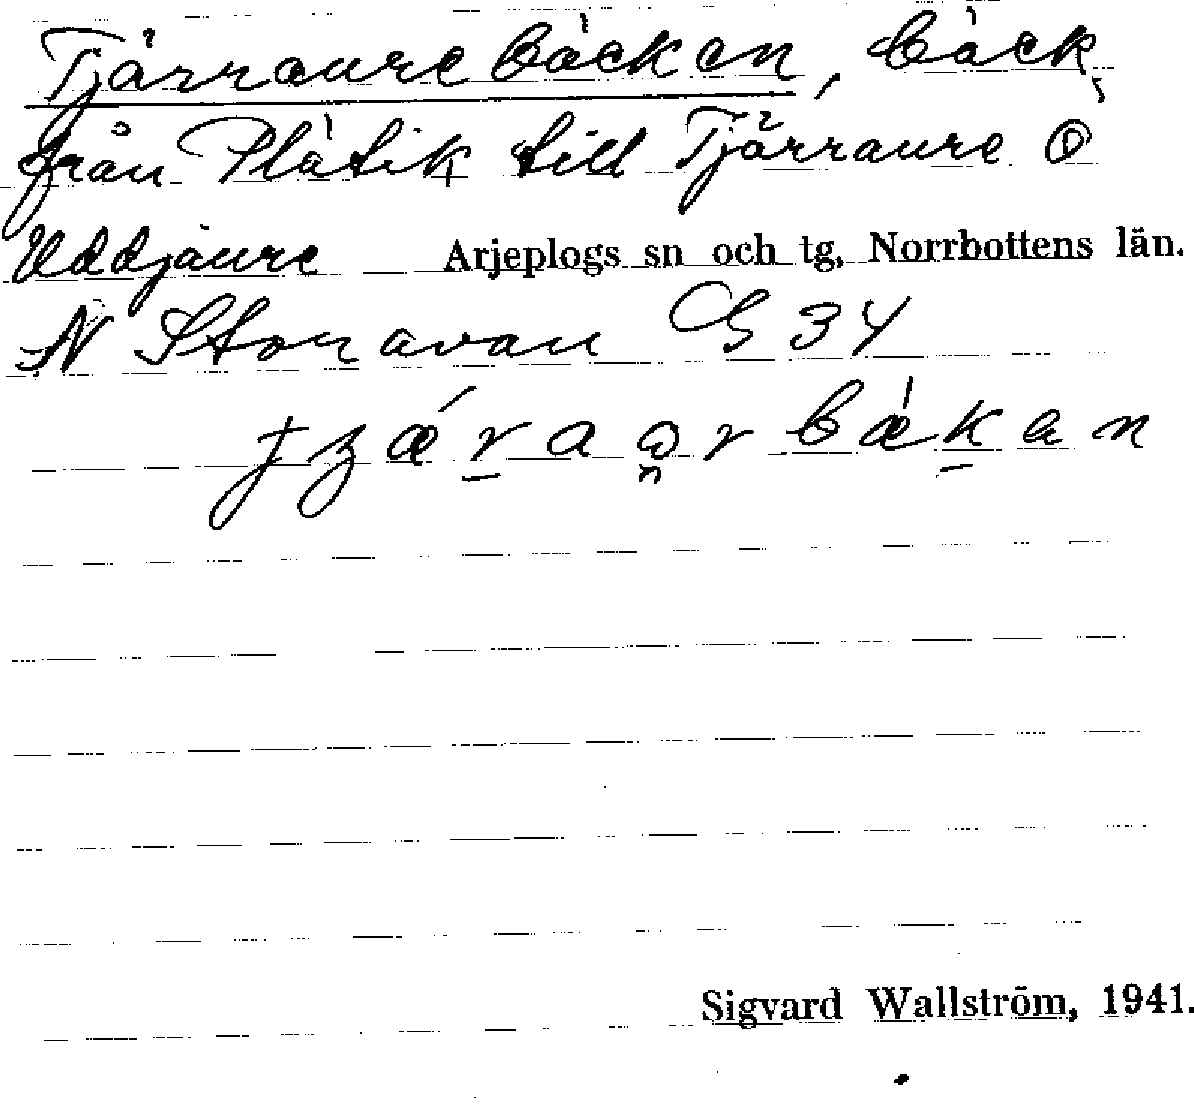 Tjärraurebäcken, bäck
från Plätik till Tjärraure Ö
Uddjaure Arjeplogs sn och tg, Norrbottens län.
N Storavan G 34
Sigvard Wallström, 1941.